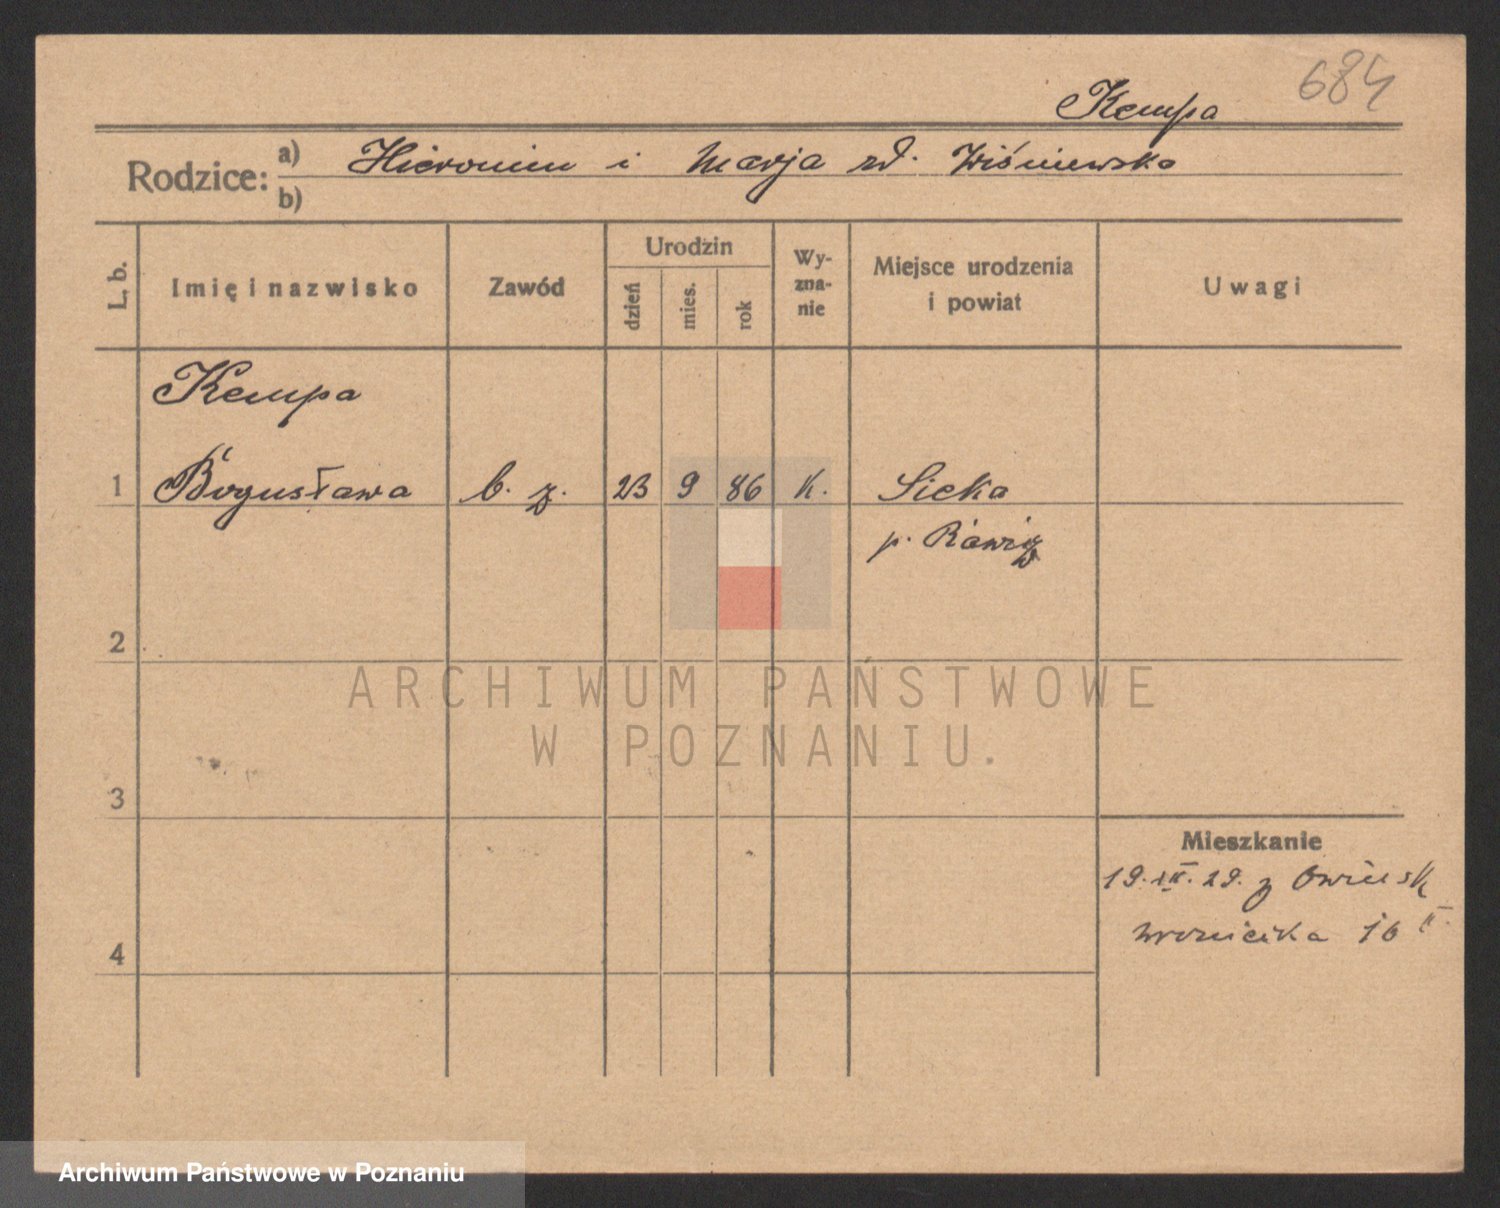 684
Kempa
Rodzice: a) Hieronim i Marja zd. Wiśniewska
b)
L. b. Imię i nazwisko Zawód Urodzin dzień mies. rok Wyznanie Miejsce urodzenia i powiat Uwagi
Kempa
1 Bogusława b. z. 23 9 86 k. Sieka
p. Rawicz
2
ARCHIWUM PAŃSTWOWE
W POZNANIU.
3
Mieszkanie
19. 29. z Owińsk
16 II.
4
Archiwum Państwowe w Poznaniu